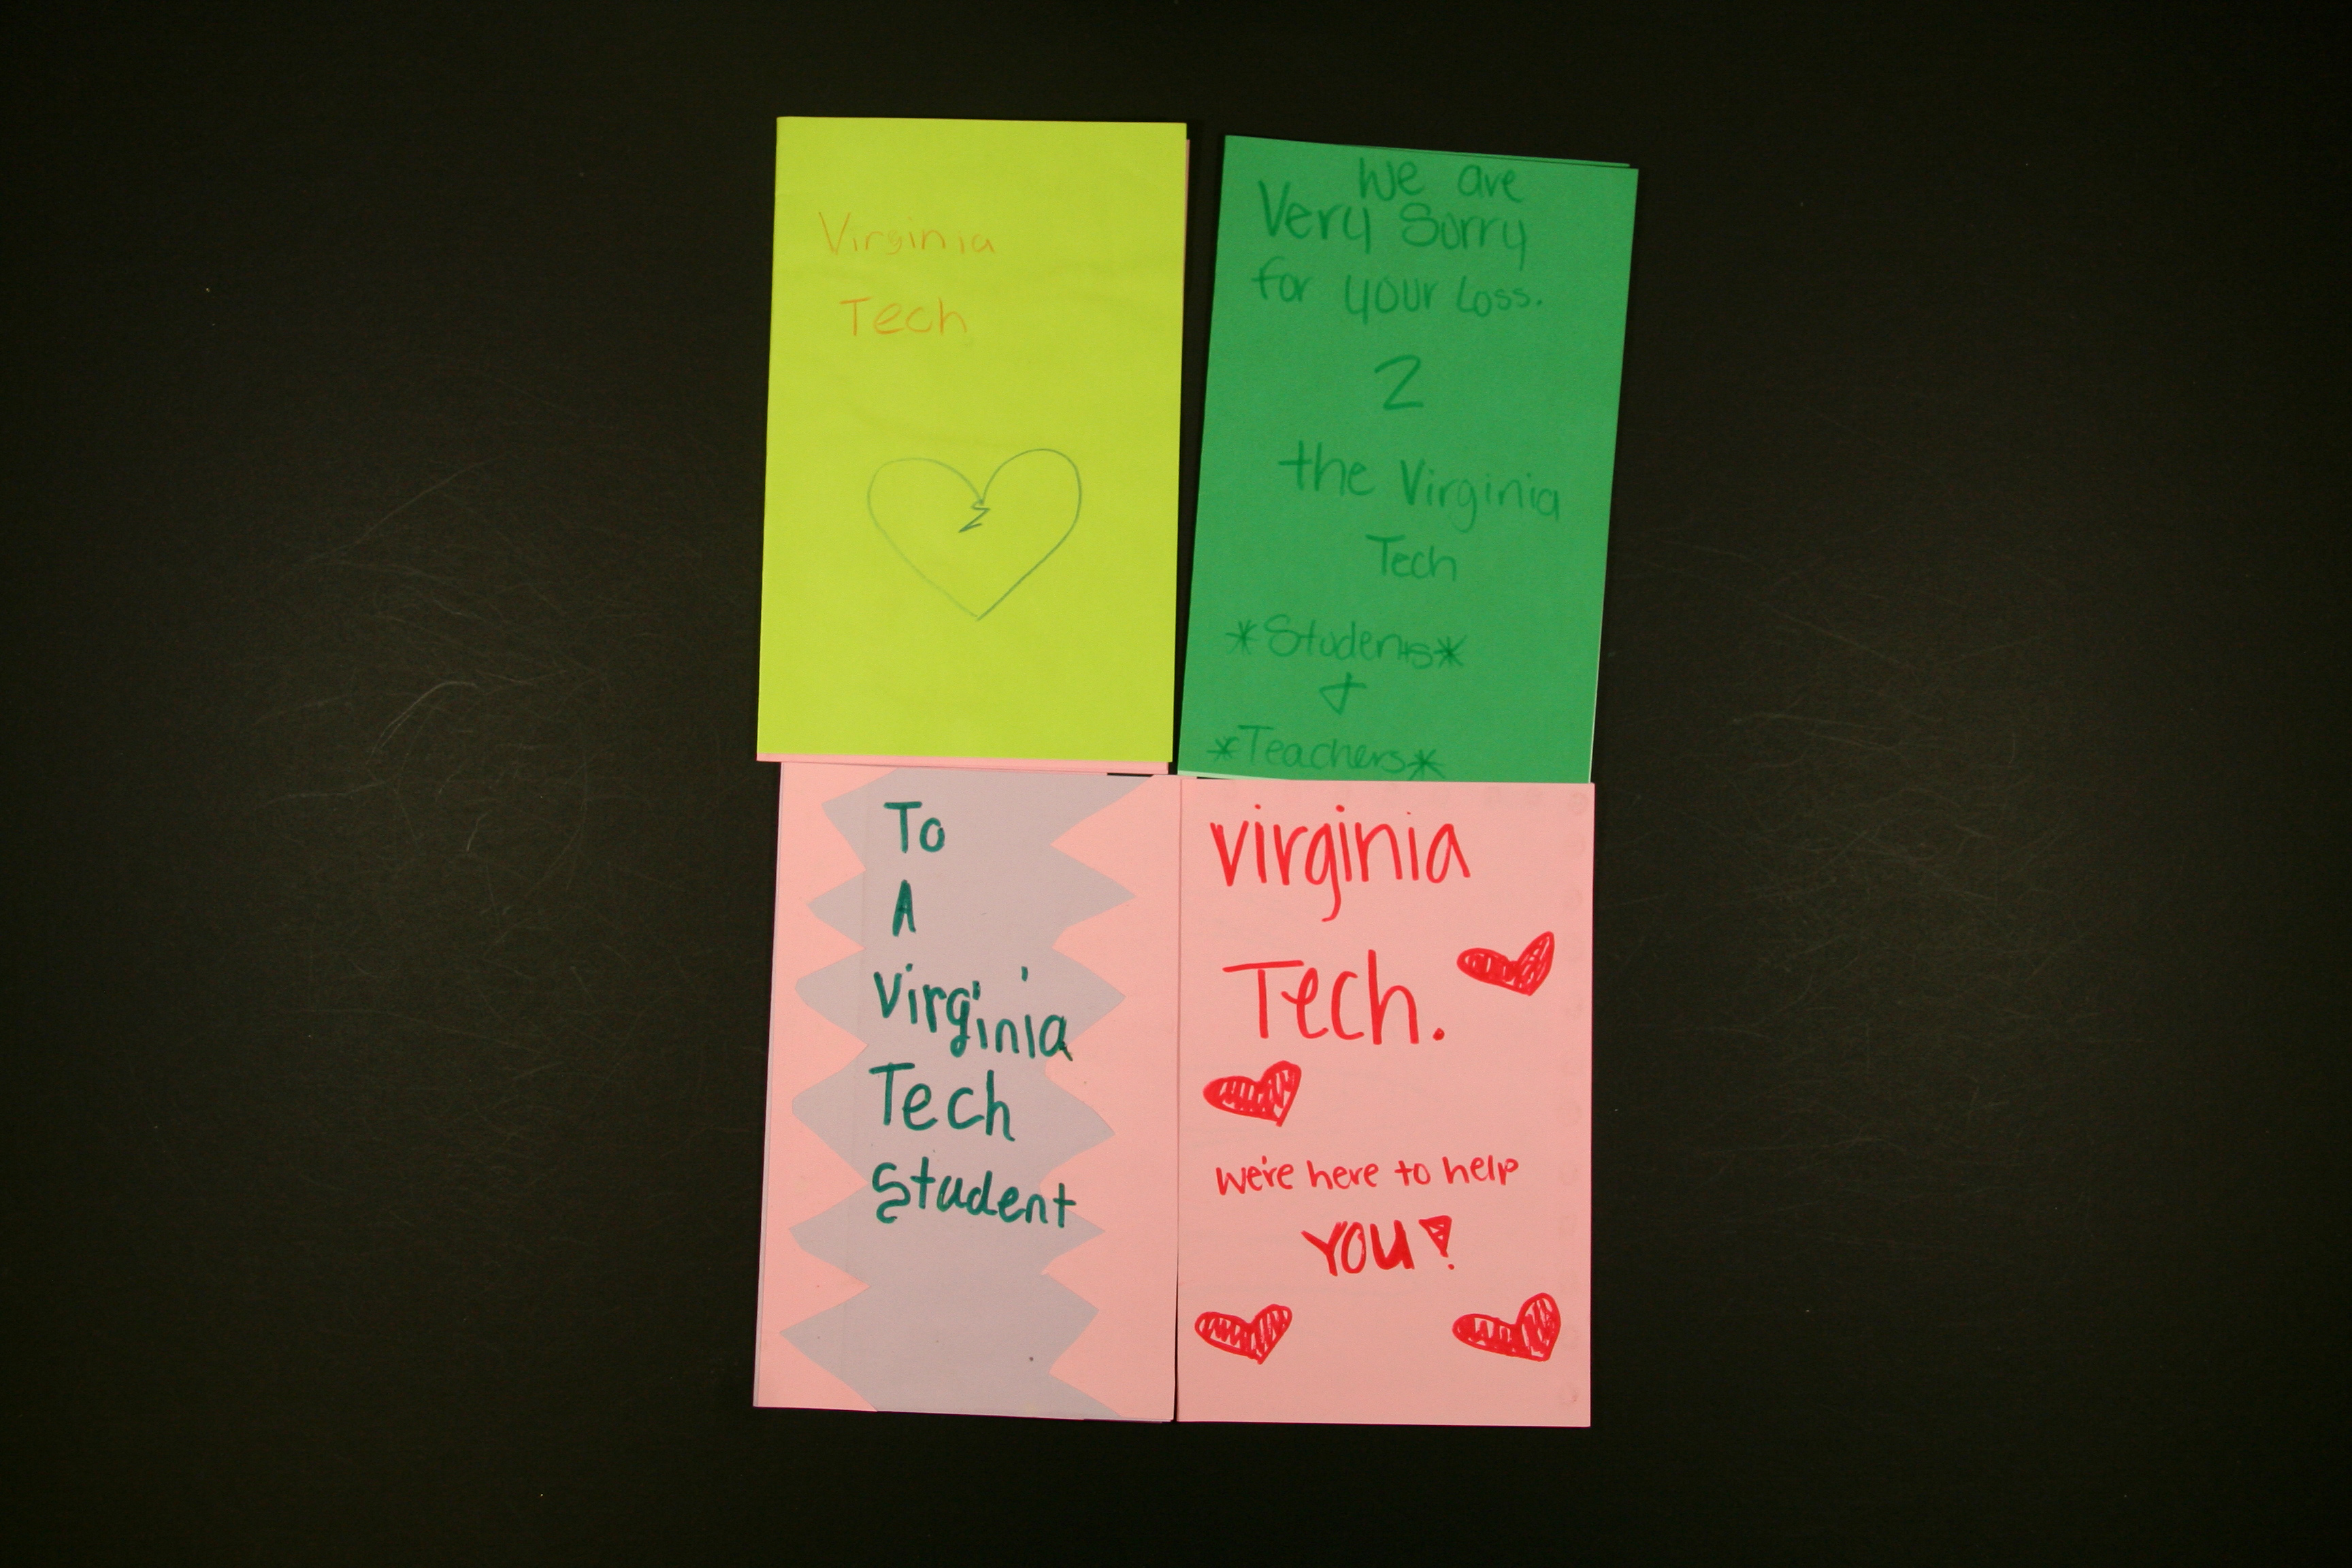 Virginia
Tech
We are
Very Sorry
for your Loss.
2
the Virginia
Tech
*Students*
&
*Teachers*
To
A
Virginia
Tech
Student
virginia
Tech.
We're here to help
YOU!